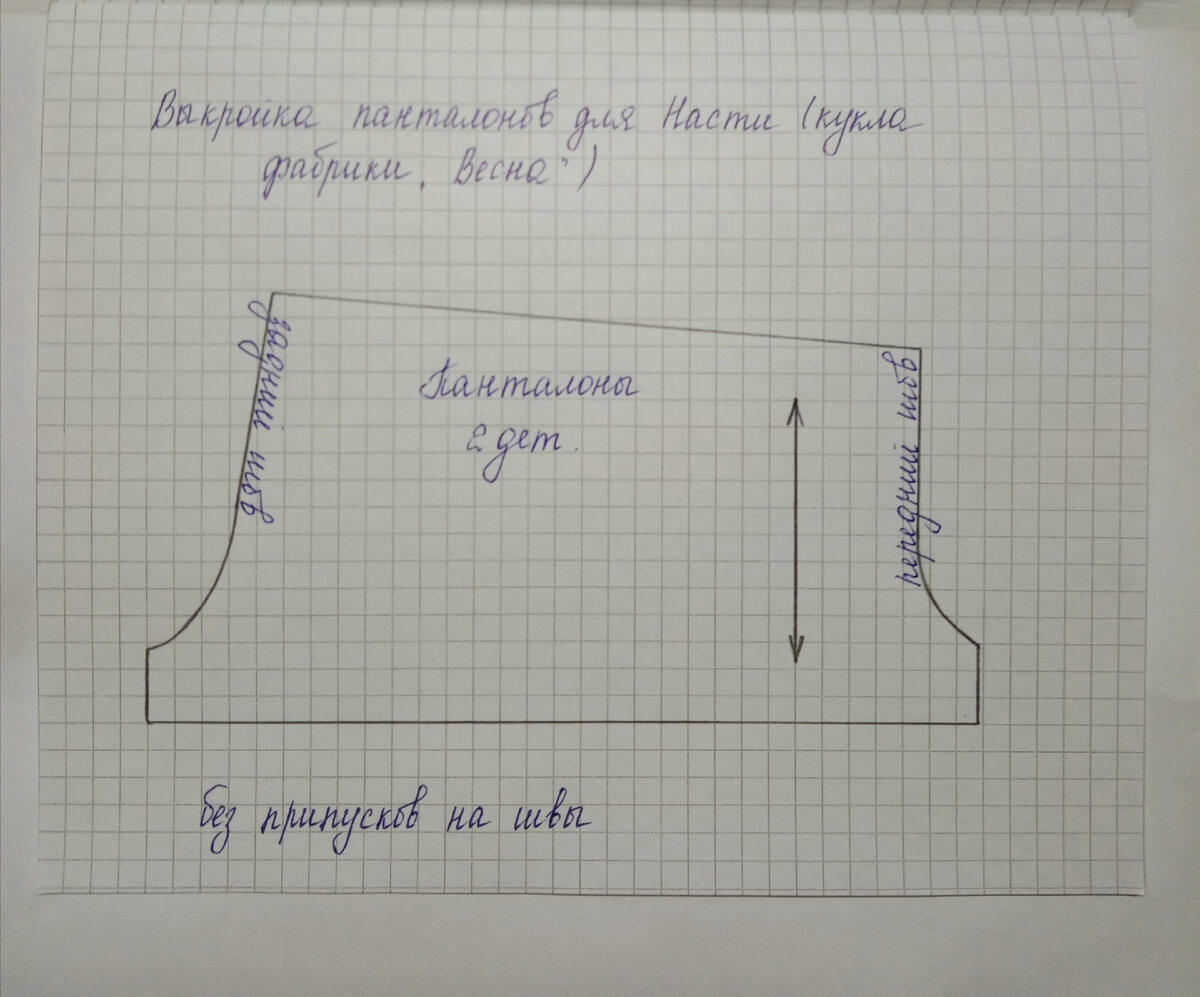 Выкройка панталонов для Насти (кукла
фабрики „Весна“)
задний шов
Панталоны
2 дет.
передний шов
без припусков на швы